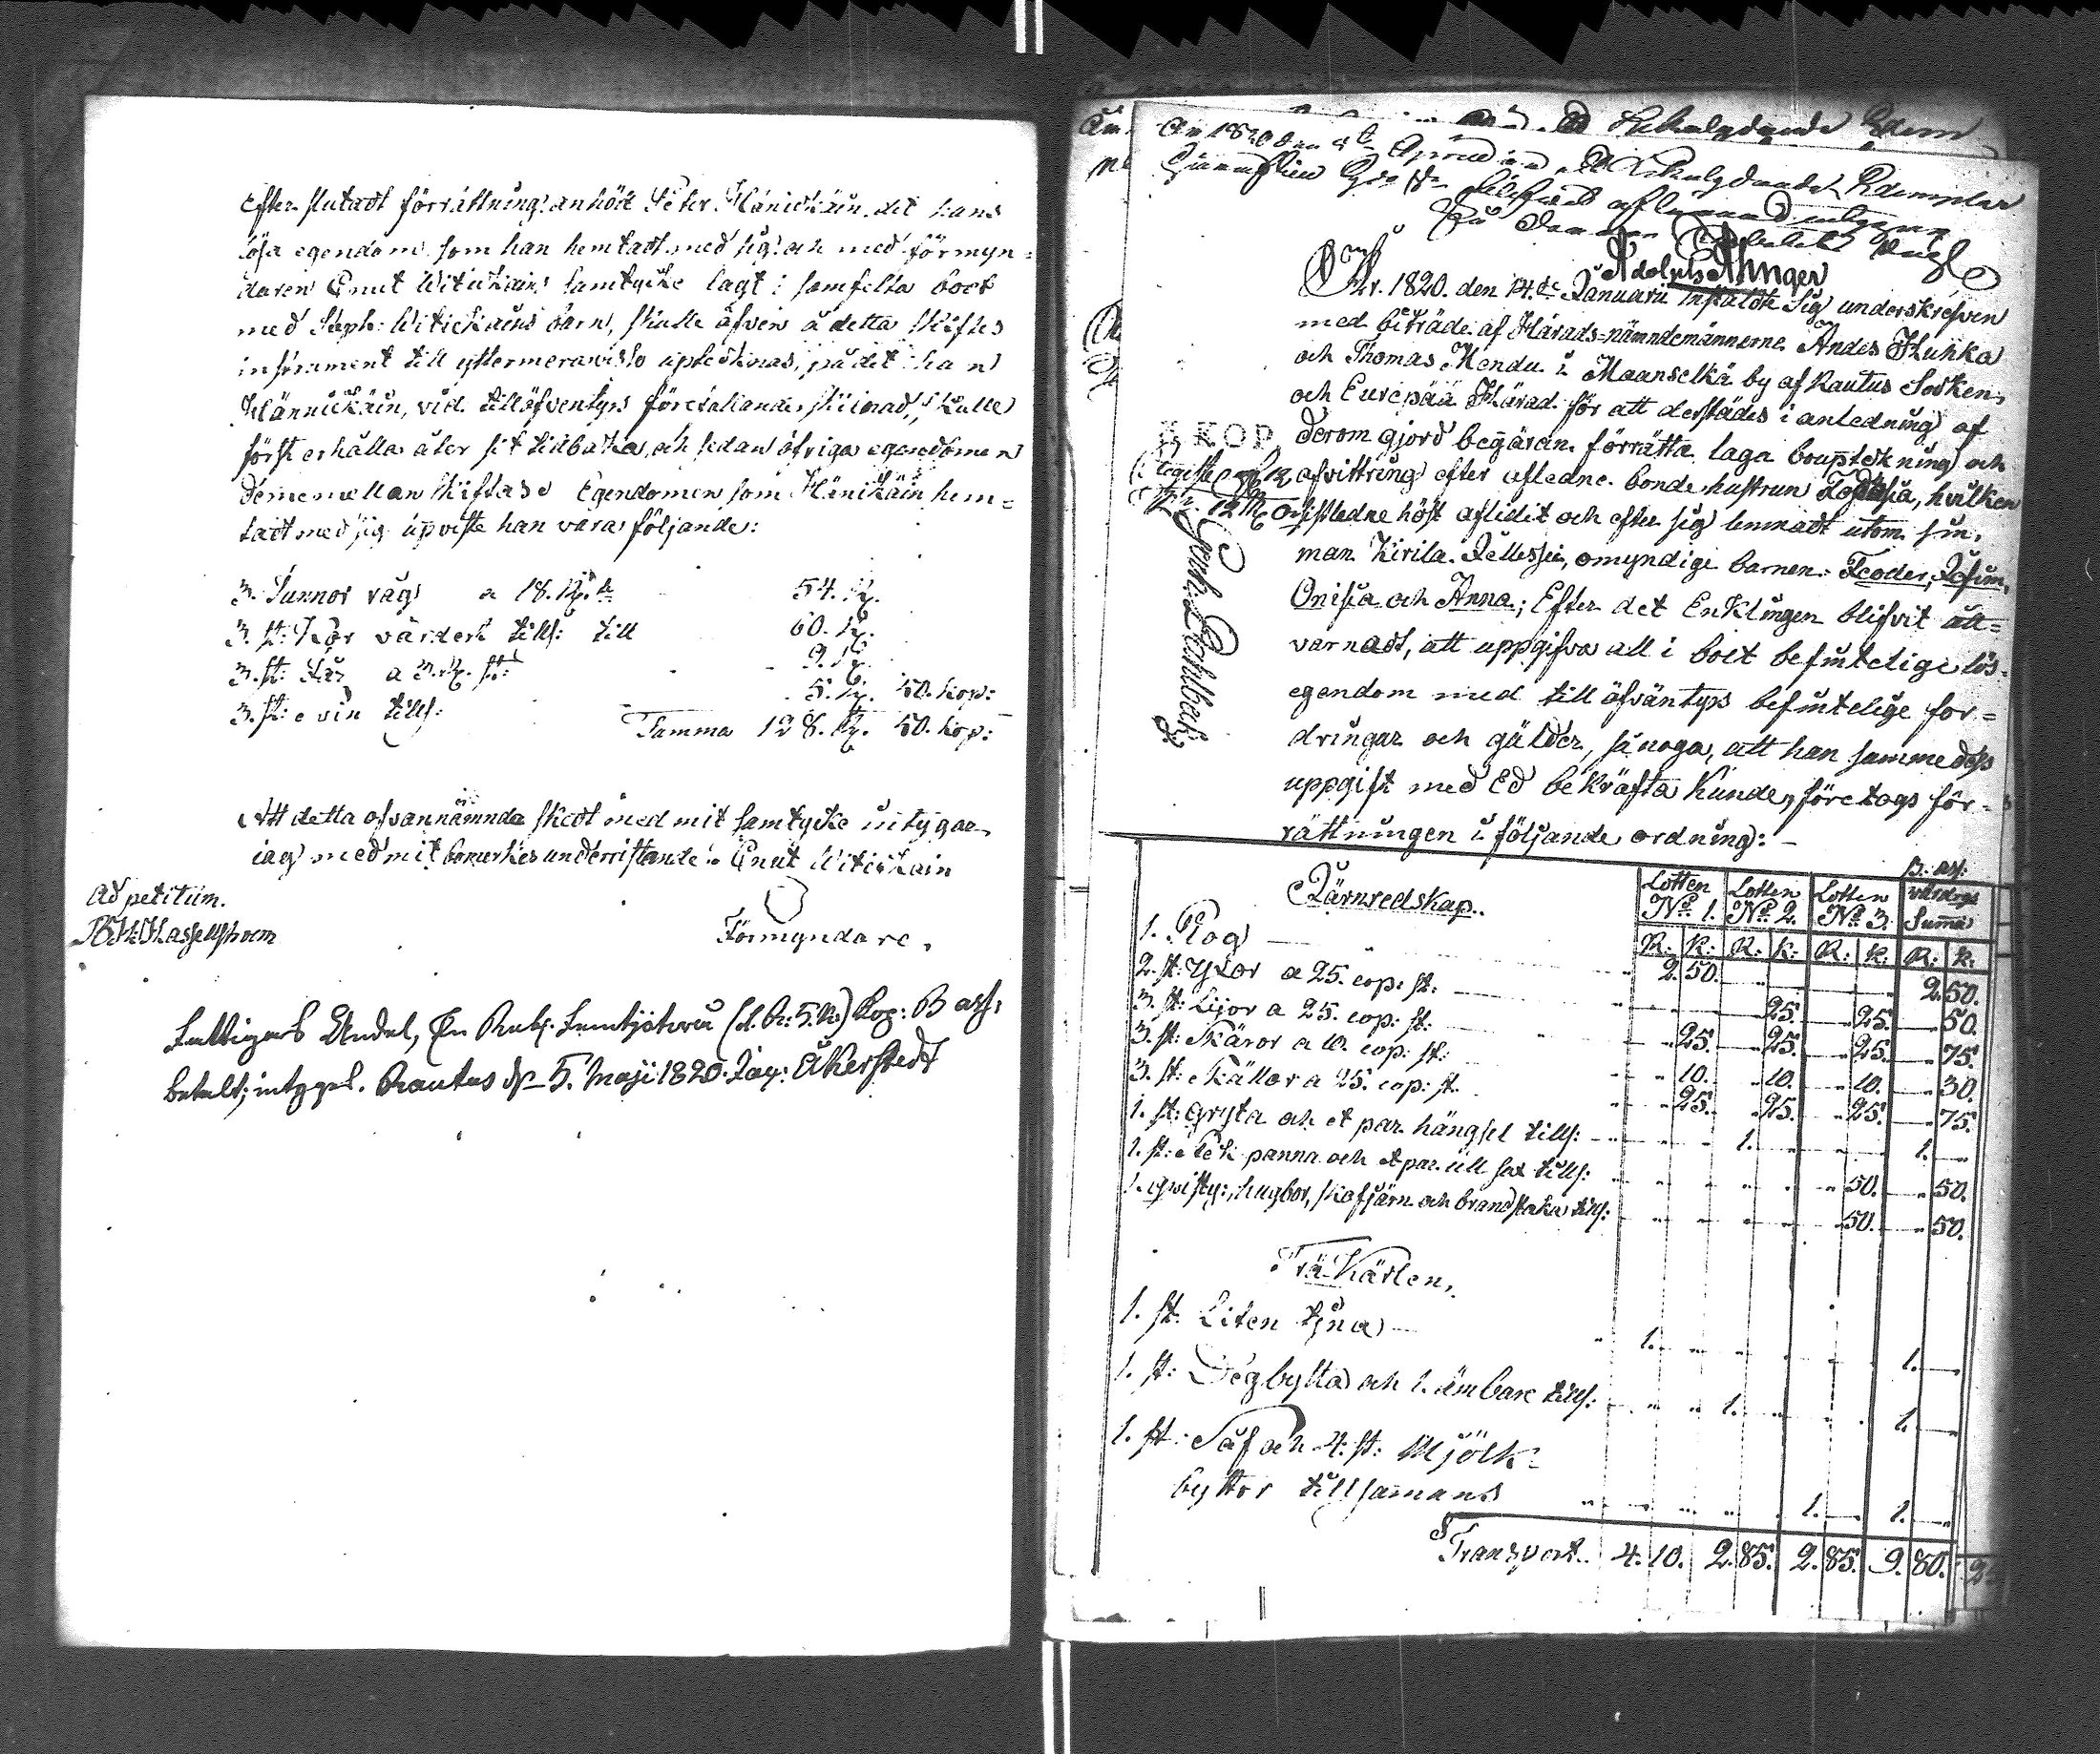 Efter slutadt förrättning anhöll Peter Hänickäin det hans
lösa egendom som han hemtadt med sig och med förmyn=
daren Cnut Witickains samtycke lagt i samfelta boet
med Steph: Witickains barn, skulle äfven å detta skiftes
instrument till yttermera wisso uptecknas, på det han
Hännickäin, vid tilläfventyrs förefallande skilnad, skulle
först erhålla åter sit tillbaka, och sedan öfriga egendomen
demem ellan skiftas. Egendomen som Hänikäin hem=
tadt med sig upviste han vara följande:
3. Tunnor råg a 18. R. 54. R.
3. st: Kor värderk tills: till 60. R.
3. st: Får a 3. R. st: 9. R.
3. st: svin tills: 5. R. 50. kop:
Summa 128. R. 50. kop:
Att detta ofvannämnda skedt med mit samtycke intygar
iag med mit bomerkes underristande. Cnut Witickain
Ad petitum.
Hasselblom
Förmyndare.
Fattigas Andel, En Rub. Femtjotvå Kop: B ass:
betalt; intygas. Rautus d. 5. Maji 1820. Åkerstedt
An 1820 den April
Adolph Ahnger
År. 1820. den 14.de Januarii instälde Sig underskrefven
med biträde af Härads=nämndemännerne Anders Huhka
och Thomas Mendu i Maanselkä by af Rautus Socken
och Euräpää Härad för att derstädes i anledning af
derom gjord begäran förrätta laga bouptekning och
afvittring efter afledne bonde hustrun hvilken
sistledne höst aflidit och efter sig lemnadt utom sin
man Kirila omyndige barnen: Feoder,
Onisia och Anna; Efter det Enklingen blifvit all=
varnadt, att uppgifva all i boet befintelige lös=
egendom med till äfväntyrs befintelige for=
dringar och gälder, så noga, att han samme dess
uppgift med Ed bekräfta Kunde, företogs för=
rättningen i följande ordning:
KOP
Järnredskap.
Lotten No. 1. Lotten No. 2. Lotten No. 3. B: ass: värderings Summa
R: K: R: K: R: K: R: K:
1. Plog 2.50. 2.50.
2. st: Yxor a 25. cop: st: 25. 25. 50.
3. st: Lijor a 25. cop: st: 25. 25. 25. 75.
3. st: Skäror a 10. cop: st: 10. 10. 10. 30.
3. st: Skällor a 25. cop: st. 25. 25. 25. 75.
1. st: gryta och et par hängsel tills: 1. 1.
1. st: Stek panna och et par ull sax tills: 50. 50.
1. hugbor, skafjärn och brandstaka tills: 50. 50.
Trä Kärlen.
1. st. Liten tyna 1. 1.
1. st: Degbytta och 1. ämbare tills: 1. 1.
1. st: Så och 4. st: Mjölk=
byttor tillsamans 1. 1.
Transport. 4. 10. 2. 85. 2. 85. 9. 80.